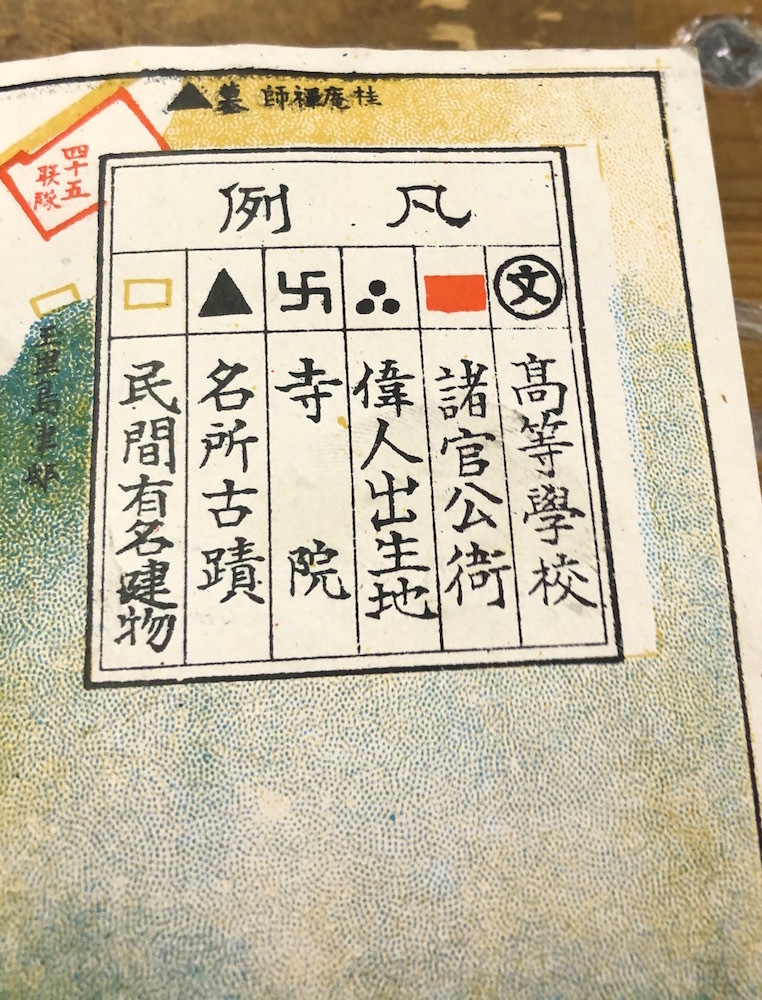 桂庵禪師墓
四十五
聯隊
凡例
文
高等學校
諸官公衙
偉人出生地
寺院
名所古蹟
民間有名建物
玉里島津邸